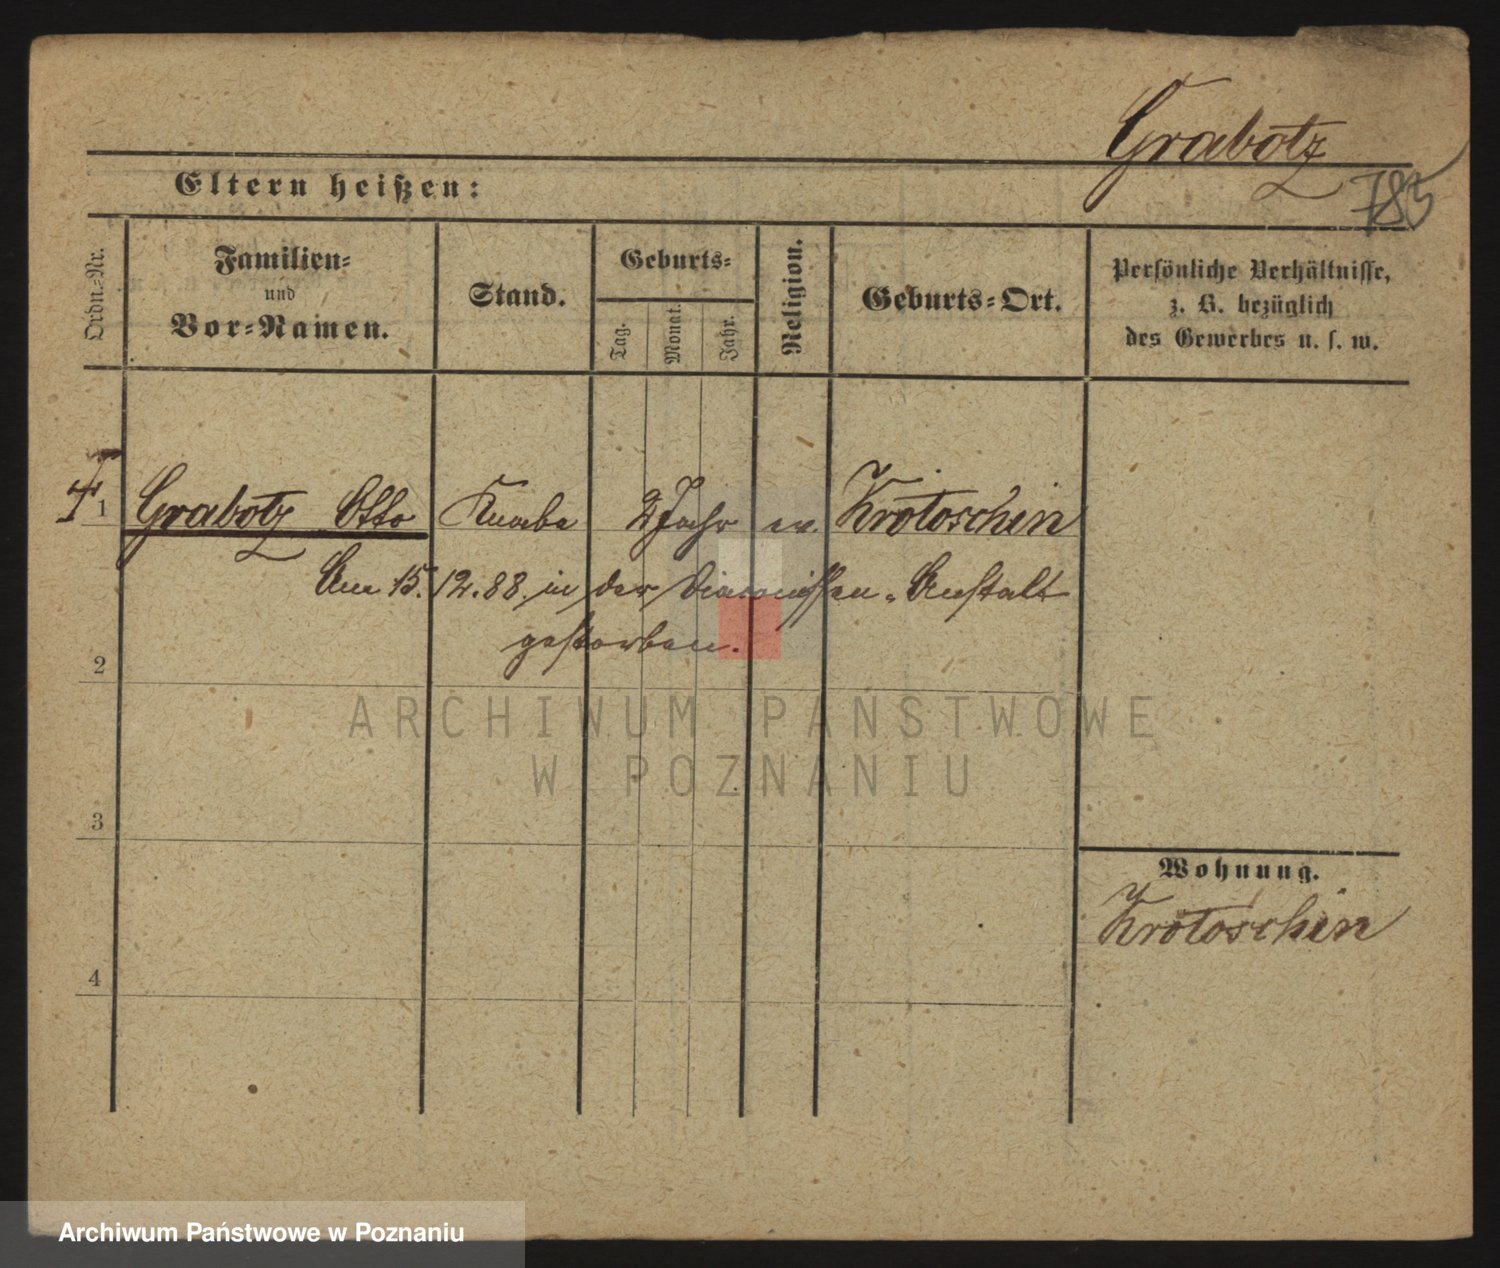 Grabotz
785
Eltern heißen:
Ordn.-Nr.
Familien-
und
Vor-Namen.
Stand.
Geburts-
Tag.
Monat.
Jahr.
Religion.
Geburts-Ort.
Persönliche Verhältnisse,
z. B. bezüglich
des Gewerbes u. s. w.
1 Grabotz Otto Knabe 2 Jahr ev. Krotoschin
Am 15.12.88. in der Diaconissen-Anstalt
gestorben.
2
3
4
Wohnung.
Krotoschin
ARCHIWUM PAŃSTWOWE
W POZNANIU
Archiwum Państwowe w Poznaniu